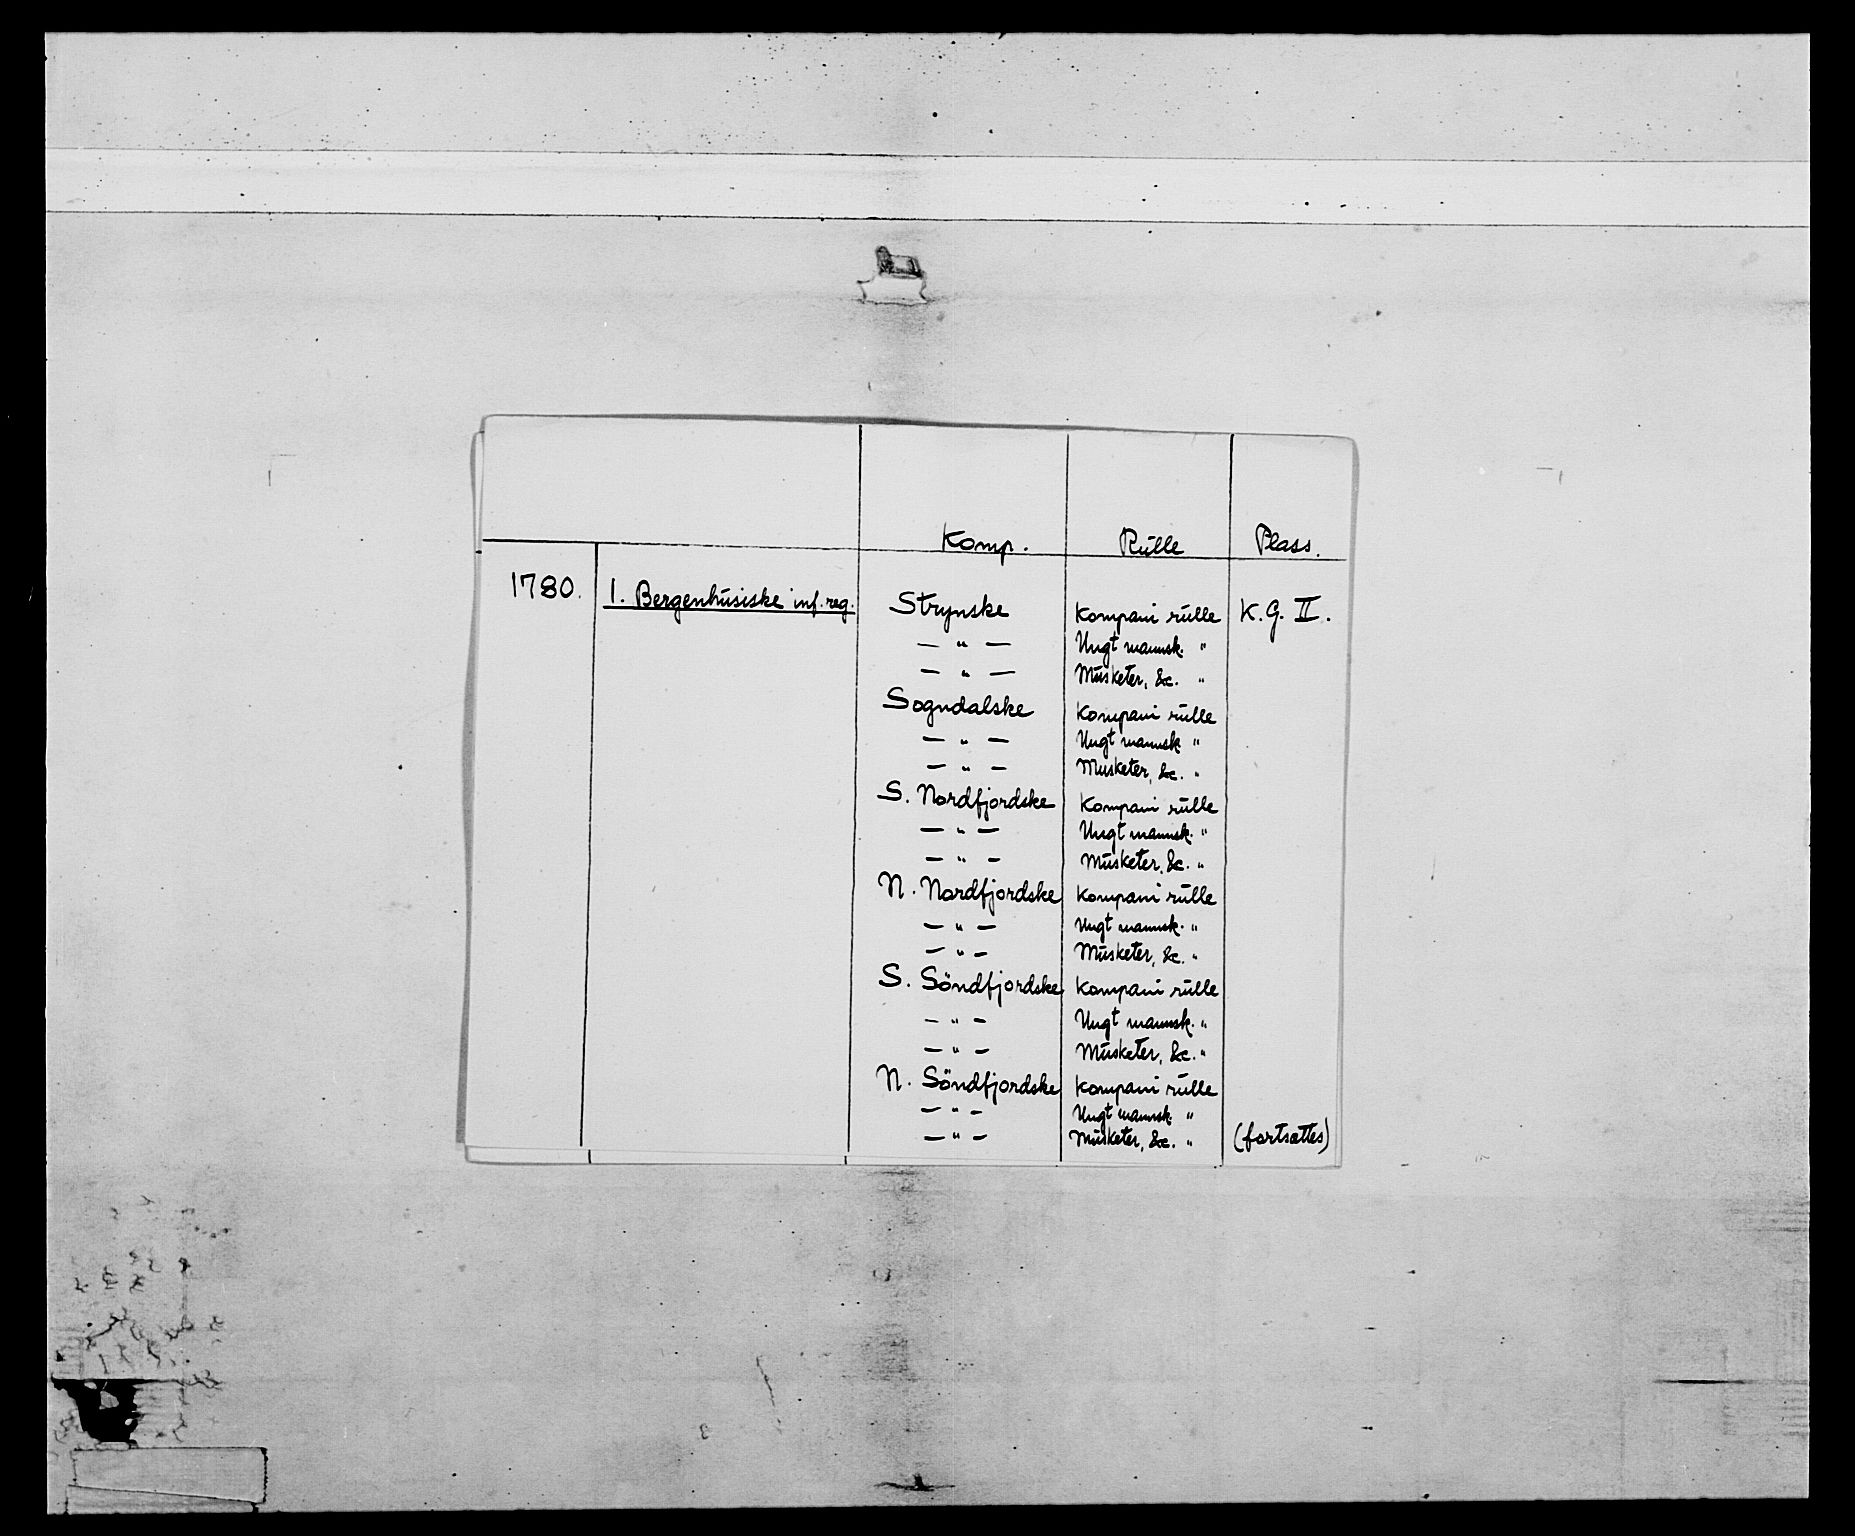 Komp. Rulle Plass.
1780. 1. Bergenhusiske inf. reg. Strynske Kompani rulle K.G. II.
— " — Ungt mannsk. "
— " — Musketer, &c. "
Sogndalske Kompani rulle
— " — Ungt mannsk "
— " — Musketer, &c. "
S. Nordfjordske Kompani rulle
— " — Ungt mannsk. "
— " — Musketer, &c. "
N. Nordfjordske Kompani rulle
— " — Ungt mannsk. "
— " — Musketer, &c. "
S. Söndfjordske Kompani rulle
— " — Ungt mannsk. "
— " — Musketer, &c. "
N. Söndfjordske Kompani rulle
— " — Ungt mannsk. "
— " — Musketer, &c. " (fortsættes)